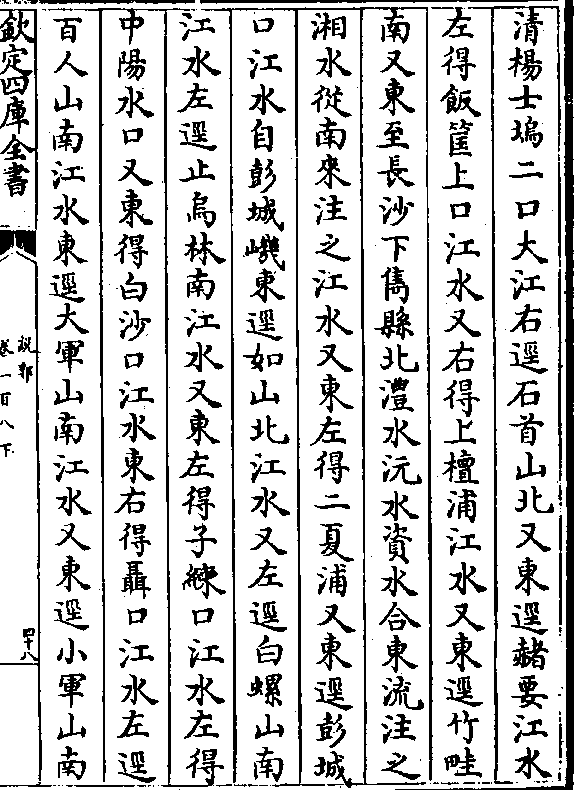 清楊士塢二口大江右逕石首山北又東逕赭要江水
左得飯筐上口江水又右得上檀浦江水又東逕竹畦
南又東至長沙下雋縣北澧水沅水資水合東流注之
湘水從南來注之江水又東左得二夏浦又東逕彭城
口江水自彭城嘰東逕如山北江水又左逕白螺山南
江水左逕止烏林南江水又東左得子練口江水左得
中陽水口又東得白沙口江水東右得聶口江水左逕
百人山南江水東逕大軍山南江水又東逕小軍山南
欽定四庫全書
說郛
卷一百八下
四十八